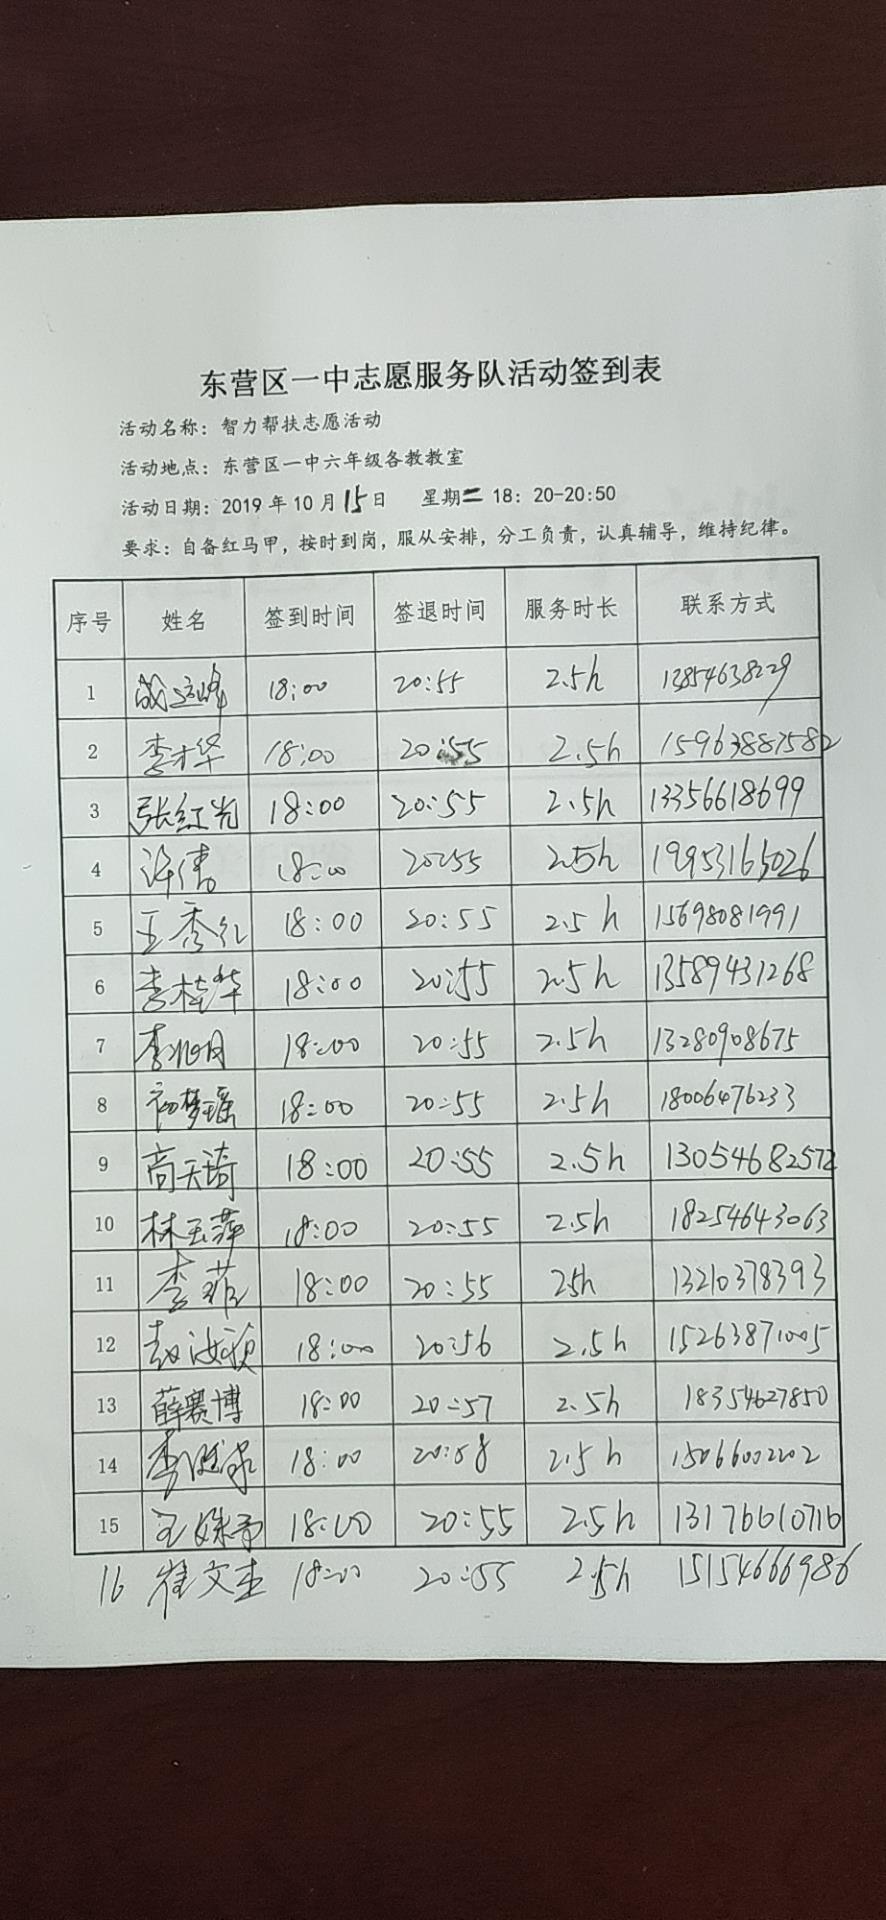 东营区一中志愿服务队活动签到表
活动名称：智力帮扶志愿活动
活动地点：东营区一中六年级各教教室
活动日期：2019年10月15日 星期二 18：20-20:50
要求：自备红马甲，按时到岗，服从安排，分工负责，认真辅导，维持纪律。
序号 姓名 签到时间 签退时间 服务时长 联系方式
1 18:00 20:55 2.5h 13854638229
2 李才华 18:00 20:55 2.5h 15963887582
3 张红光 18:00 20:55 2.5h 13356618699
4 许倩 18:00 20:55 2.5h 19953165026
5 王秀红 18:00 20:55 2.5h 15698081991
6 李桂华 18:00 20:55 2.5h 13589431268
7 18:00 20:55 2.5h 13280908675
8 初梦瑶 18:00 20:55 2.5h 18006476233
9 高天琦 18:00 20:55 2.5h 13054682572
10 林玉萍 18:00 20:55 2.5h 18254643063
11 李菲 18:00 20:55 25h 13210378393
12 赵汝颖 18:00 20:56 2.5h 15263871005
13 薛赛博 18:00 20:57 2.5h 18354627850
14 18:00 20:58 2.5h 15066002202
15 18:00 20:55 2.5h 13176610716
16 崔文杰 18:00 20:55 2.5h 15154666986